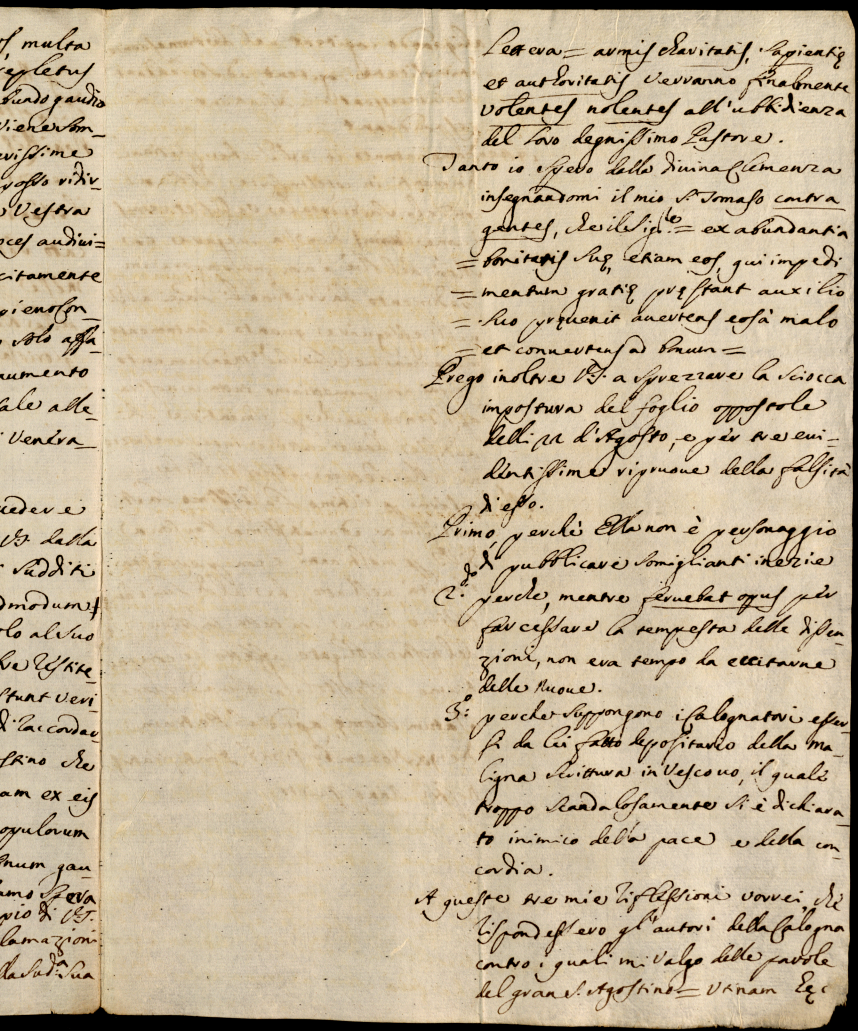 s, multa
repletus
bundo gaudio
viene som-
rissime
rosso ridir-
e Vestra
oces audivi=
citamente
pieno con-
o solo affa-
aumento
ale alle-
i Venera-
vedere
V.S. dalla
i sudditi
dmodum
olo al suo
stunt veri-
di raccordar
stino che
am ex eis
opulorum
num gau-
amo spera
pio di V.S.
lamazioni
lla sud.a sua
Lettera = armis charitatis, sapientię
et authoritatis verranno finalmente
volentes nolentes all'ubbidienza
del loro degnissimo Pastore.
Tanto io spero dalla divina Clemenza
insegnandomi il mio S. Tomaso contra
gentes, che il Sig.re = ex abundantia
= bonitatis suę, etiam eos, qui impedi
= mentum gratię pręstant auxilio
= suo pręuenit auertens eos à malo
= et conuertens ad bonum =
Prego inoltre V.S. a sprezzare la sciocca
impostura del foglio oppostole
delli 22 d'Agosto, e per tre eui-
dentissime ripruoue della falsità
di esso.
Primo, perche Ella non è personaggio
di pubblicare somiglianti inezie
2.do perche, mentre feruebat opus per
far cessare la tempesta delle dissen-
zioni, non era tempo da eccitarne
delle nuoue.
3.o perche suppongono i Calognatori esser-
si da lei fatto depositario della ma-
ligna scrittura in Vescouo, il quale
troppo scandalosamente si è dichiara-
to inimico della pace e della con-
cordia.
A queste tre mie riflessioni vorrei, che
rispondessero gl'autori della Calogna
contro i quali mi valgo delle parole
del gran S. Agostino = Utinam